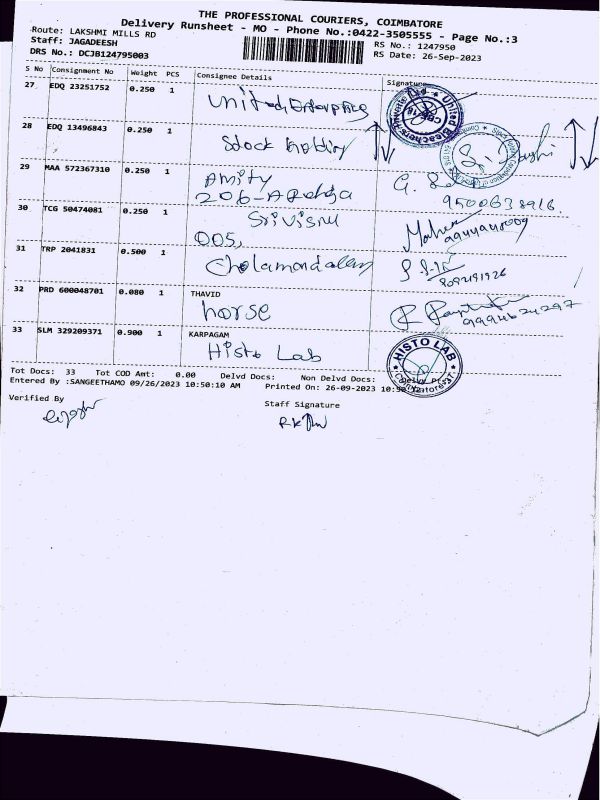 THE PROFESSIONAL COURIERS, COIMBATORE
Delivery Runsheet - MO - Phone No.:0422-3505555 - Page No.:3
Route: LAKSHMI MILLS RD
RS No.: 1247950
Staff: JAGADEESH
RS Date: 26-Sep-2023
DRS No.: DCJB124795003
S No Consignment No Weight PCS Consignee Details Signature
27 EDQ 23251752 0.250 1 United Enterprises
28 EDQ 13496843 0.250 1 Stock holding
29 MAA 572367310 0.250 1 Amity
206-A Raheja 9500638916.
30 TCG 50474081 0.250 1 Sri Visnu
005,
31 TRP 2041831 0.500 1 Cholamandalam
8092191926
32 PRD 600048701 0.080 1 THAVID
horse 9994624297
33 SLM 329209371 0.900 1 KARPAGAM
Histo Lab HISTO LAB
Tot Docs: 33 Tot COD Amt: 0.00 Delvd Docs: Non Delvd Docs:
Entered By :SANGEETHAMO 09/26/2023 10:50:10 AM Printed On: 26-09-2023
Verified By
Staff Signature